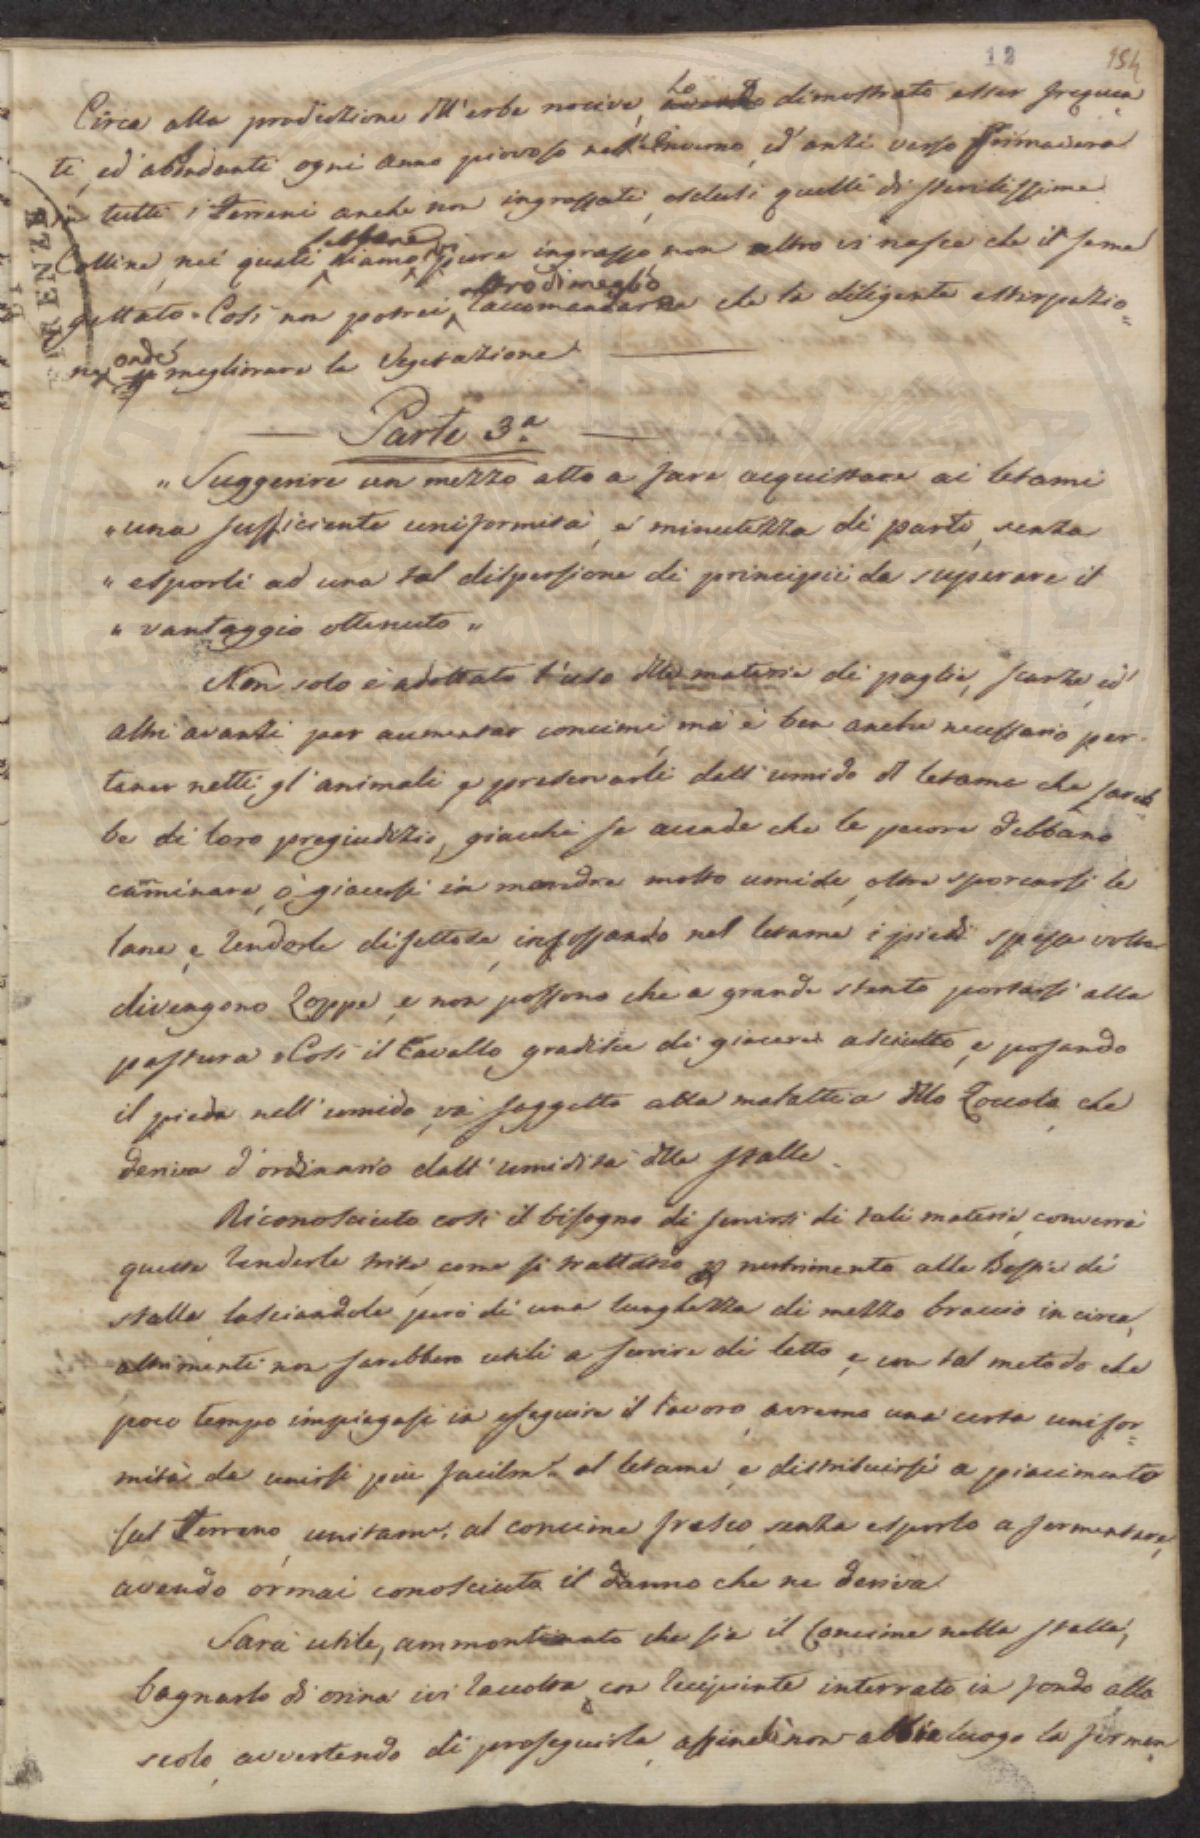 12 154
Circa alla produzione dell'erbe nocive, ho dimostrato esser frequen-
ti, ed abbondanti ogni anno piovoso nell'Inverno, ed anzi verso Primavera
in tutti i Terreni anche non ingrassati, esclusi quelli di sterilissime
Colline, nei quali ingrasso non altro vi nasce che il seme
gettato. Così non potrei altro di meglio raccomandare che la diligente estirpazio=
ne, onde migliorare la Vegetazione
Parte 3.a
„ Suggerire un mezzo atto a fare acquistare ai letami
„ una sufficiente uniformità, e minutezza di parti, senza
„ esporli ad una tal dispersione di principii da superare il
„ vantaggio ottenuto „
Non solo è adottato l'uso delle materie di paglie, scarze, ed
altri avanzi per aumentar concimi, mà è ben anche necessario per
tener netti gl'animali, e preservarli dall'umido del letame che sareb=
be di loro pregiudizio, giacchè se accade che le pecore debbano
caminare, o giacersi in mandre molto umide, oltre sporcarsi le
lane, e renderle difettose, infossando nel letame i piedi spesse volte
divengono zoppe, e non possono che a grande stento portarsi alla
pastura. Così il Cavallo gradisce di giacere asciutto, e posando
il piede nell'umido, và soggetto alla malattia dello Zoccolo, che
deriva d'ordinario dall'umidità delle stalle.
Riconosciuto così il bisogno di servirsi di tali materie, converrà
queste renderle trite, come si trattasse p nutrimento alle Bestie di
stalla, lasciandole però di una lunghezza di mezzo braccio in circa,
altrimenti non sarebbero utili a servire di letto, e con tal metodo che
poco tempo impiegasi in eseguire il lavoro, avremo una certa unifor=
mità da unirsi più facilm.e al letame, e distribuirsi a piacimento
sul Terreno, unitam.e al concime fresco, senza esporlo a fermentare,
avendo ormai conosciuto il danno che ne deriva.
Sarà utile, ammontinato che sia il Concime nella stalla,
bagnarlo di orina ivi raccolta con recipiente interrato in fondo allo
scolo, avvertendo di proseguirla, affinchè non abbia luogo la fermen